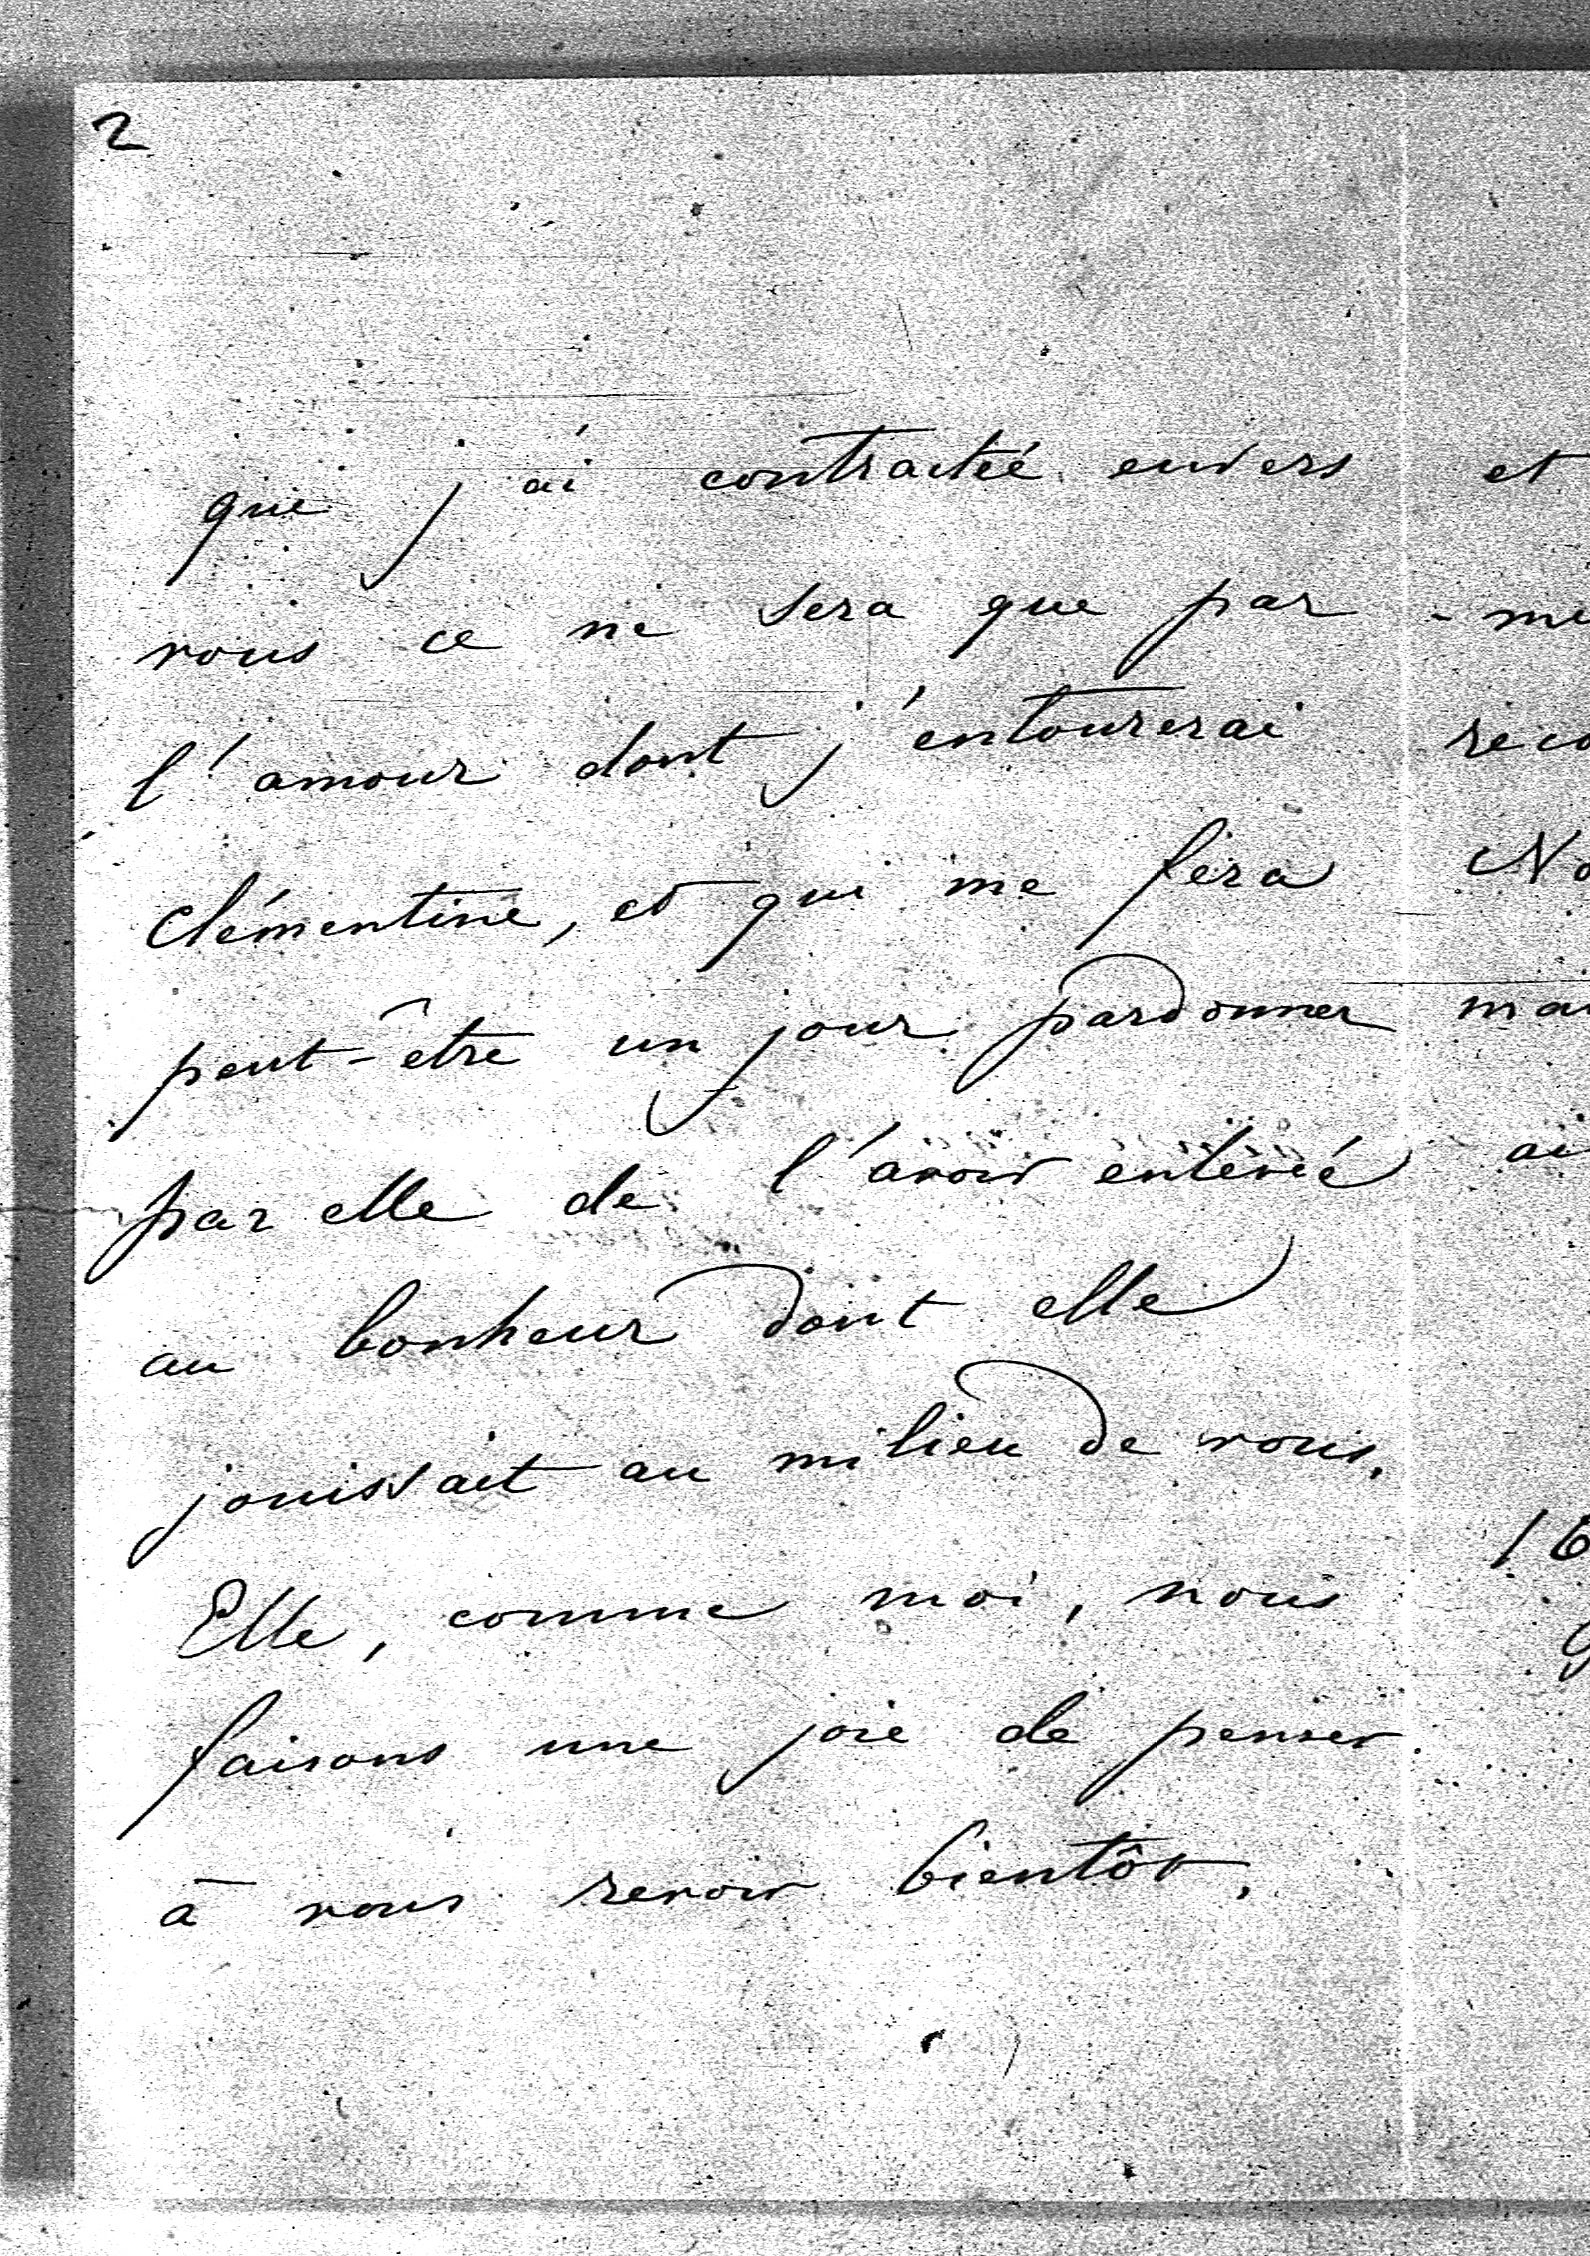 2
que j'ai contractée envers
vous ce ne sera que par
l'amour dont j'entourerai
Clémentine, et qui me fera
peut-être un jour pardonner
par elle de l'avoir enlevée
au bonheur dont elle
jouissait au milieu de vous.
Elle, comme moi, nous
faisons une joie de penser
à vous revoir bientôt.
et
- me
reco
No
mai
ai
16